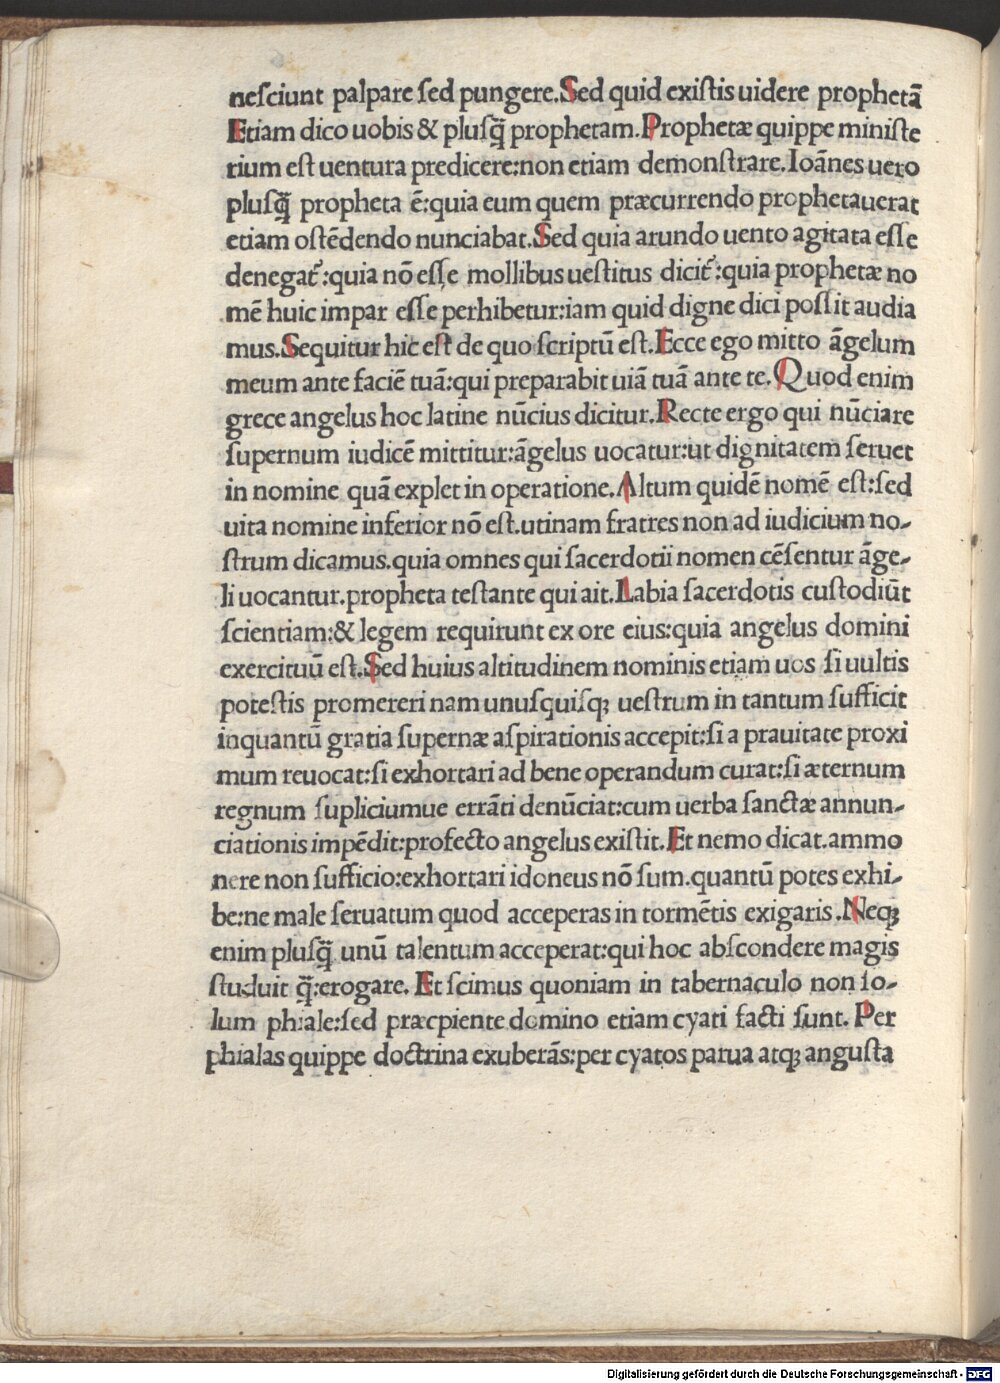 neſciunt palpare ſed pungere.Sed quid exiſtis uidere prophetā
Etiam dico uobis & pluſq̄ prophetam.Prophetæ quippe miniſte
rium eſt uentura predicere:non etiam demonſtrare.Ioānes uero
pluſq̄ propheta ē:quia eum quem præcurrendo prophetauerat
etiam oſtēdendo nunciabat.Sed quia arundo uento agitata eſſe
denegat᷑:quia nō eſſe mollibus ueſtitus dicit᷑:quia prophetæ no
mē huic impar eſſe perhibetur:iam quid digne dici poſſit audia
mus.Sequitur hic eſt de quo ſcriptū eſt.Ecce ego mitto āgelum
meum ante faciē tuā:qui preparabit uiā tuā ante te.Quod enim
grece angelus hoc latine nūcius dicitur.Recte ergo qui nūciare
ſupernum iudicē mittitur:āgelus uocatur:ut dignitatem ſeruet
in nomine quā explet in operatione.Altum quidē nomē eſt:ſed
uita nomine inferior nō eſt.utinam fratres non ad iudicium no-
ſtrum dicamus.quia omnes qui ſacerdotii nomen cēſentur āge-
li uocantur.propheta teſtante qui ait.Labia ſacerdotis cuſtodiūt
ſcientiam:& legem requirunt ex ore eius:quia angelus domini
exercituū eſt.Sed huius altitudinem nominis etiam uos ſi uultis
poteſtis promereri nam unuſquiſqꝫ ueſtrum in tantum ſufficit
inquantū gratia ſupernæ aſpirationis accepit:ſi a prauitate proxi
mum reuocat:ſi exhortari ad bene operandum curat:ſi æternum
regnum ſupliciumue errāti denūciat:cum uerba ſanctæ annun-
ciationis impēdit:profecto angelus exiſtit.Et nemo dicat.ammo
nere non ſufficio:exhortari idoneus nō ſum.quantū potes exhi-
be:ne male ſeruatum quod acceperas in tormētis exigaris.Neqꝫ
enim pluſq̄ unū talentum acceperat:qui hoc abſcondere magis
ſtuduit q̄:erogare. Et ſcimus quoniam in tabernaculo non ſo-
lum phiale:ſed præcpiente domino etiam cyati facti ſunt. Per
phialas quippe doctrina exuberās:per cyatos parua atqꝫ anguſta
Digitalisierung gefördert durch die Deutsche Forschungsgemeinschaft - DFG